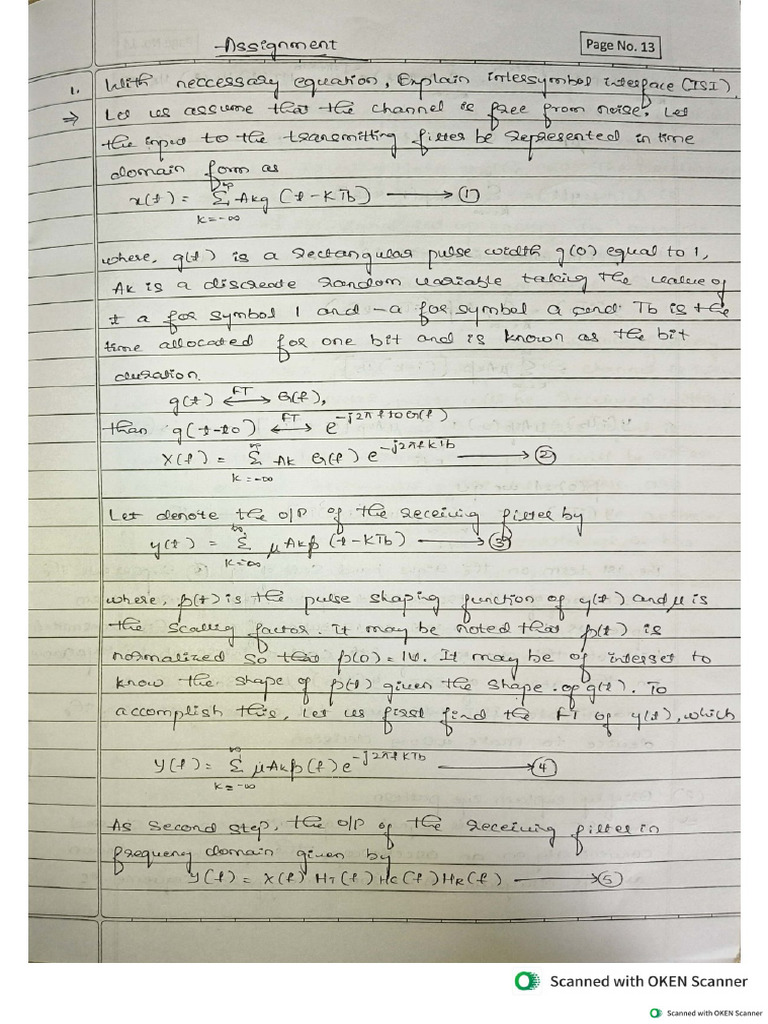 Assignment
Page No. 13
1. With neccessary equation, Explain intersymbol interface (ISI).
⇒ Let us assume that the channel is free from noise. Let
the input to the transmitting filter be represented in time
domain form as
x(t) = ∞ Σ k=-∞ Akg (t-KTb) → (1)
where, g(t) is a rectangular pulse width g(0) equal to 1,
Ak is a discreate random variable taking the value of
+ a for symbol 1 and -a for symbol a Tb is the
time allocated for one bit and is known as the bit
duration.
g(t) ←FT→ G(f),
than g(t-t0) ←FT→ e^-j2πft0 G(f)
X(f) = ∞ Σ k=-∞ Ak G(f) e^-j2πfkTb → (2)
Let denote the O/P of the receiving filter by
y(t) = ∞ Σ k=∞ μAkp (t-KTb) → (3)
where, p(t) is the pulse shaping function of y(t) and μ is
the scaling factor. It may be noted that p(t) is
normalized so that p(0) = 1V. It may be of interset to
know the shape of p(t) given the shape of g(t). To
accomplish this, Let us first find the FT of y(t), which
Y(f) = ∞ Σ k=-∞ μAkp(f) e^-j2πfKTb → (4)
As second step, the O/P of the receiving filter in
frequeny domain given by
Y(f) = X(f) HT(f) HC(f) HR(f) → (5)
Scanned with OKEN Scanner
Scanned with OKEN Scanner